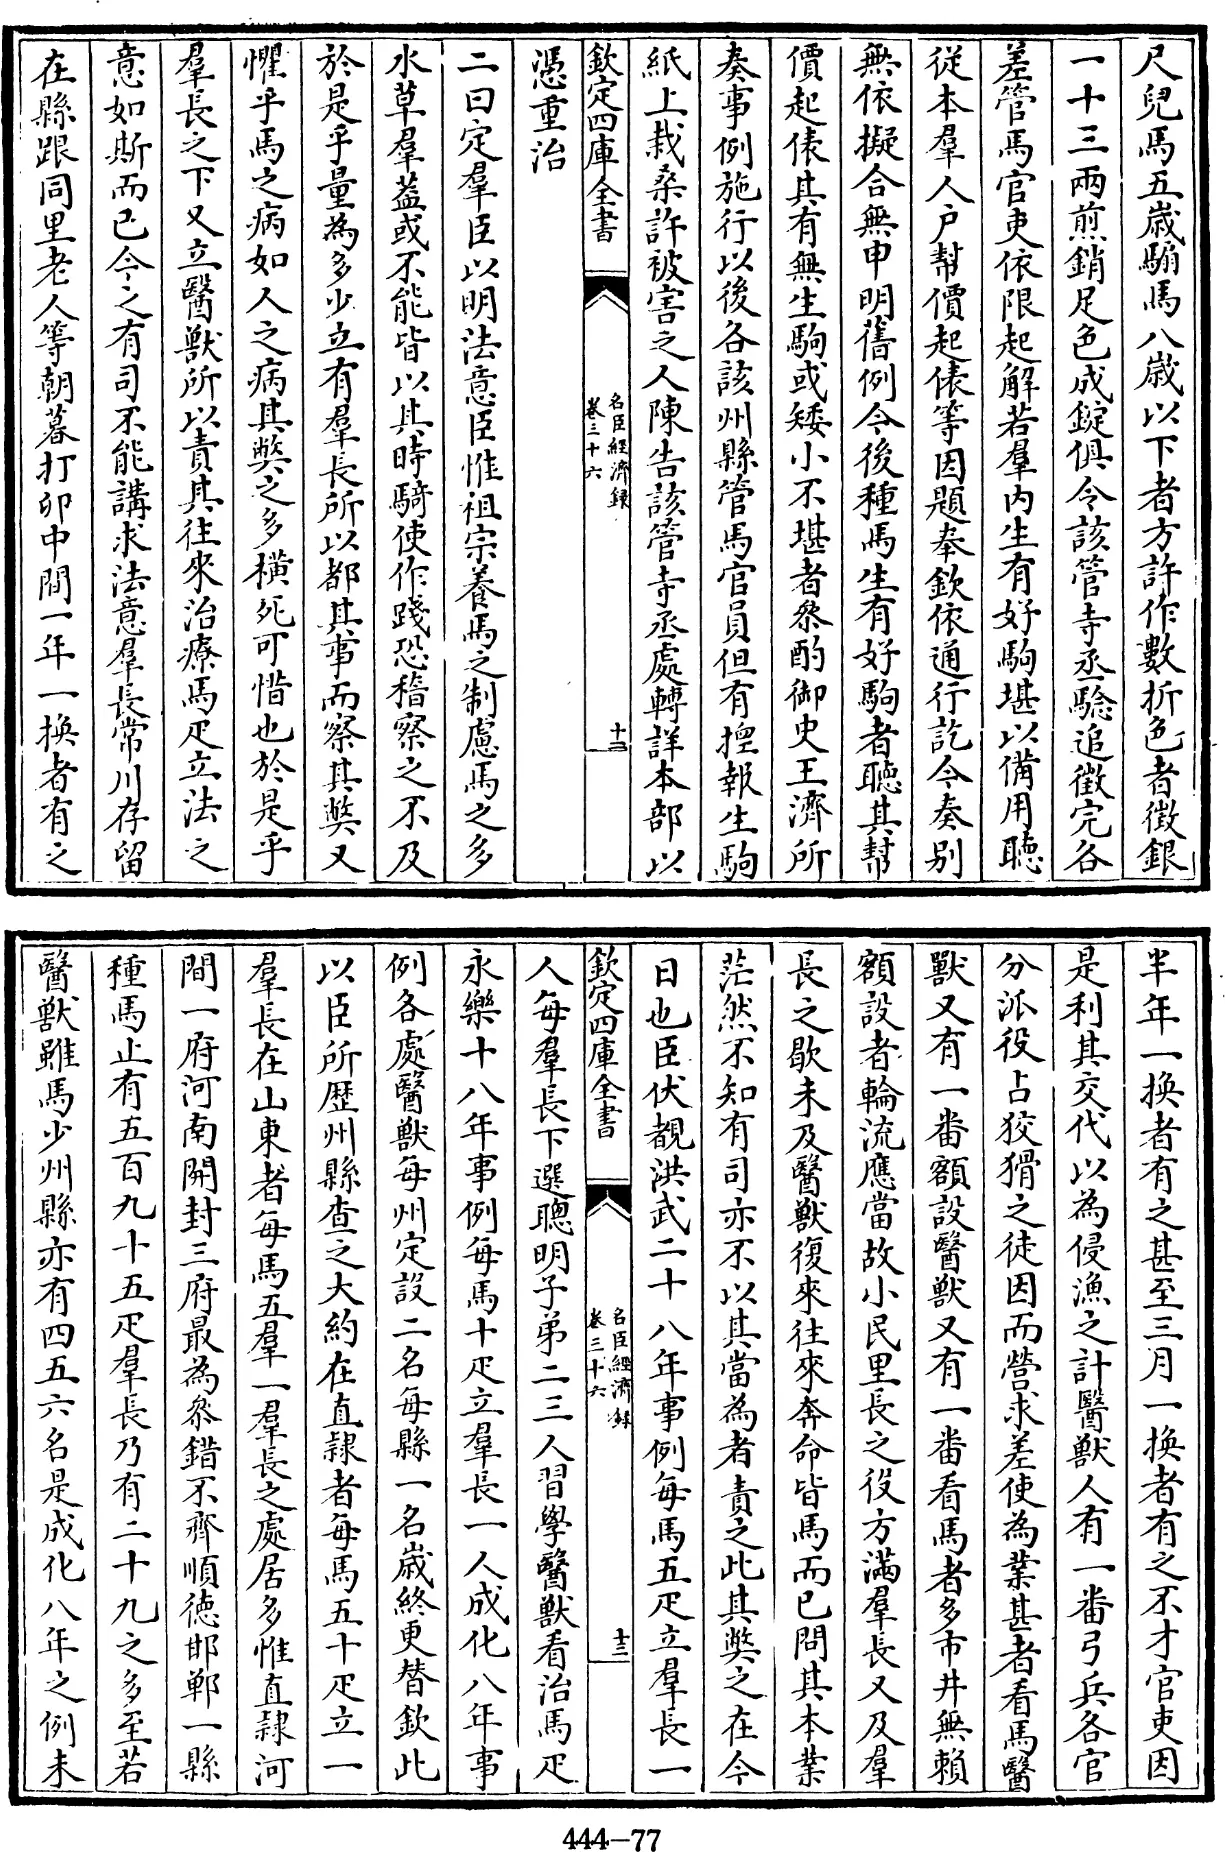 尺兒馬五歲騸馬八歲以下者方許作數折色者徵銀
一十三兩煎銷足色成錠俱令該管寺丞驗追徵完各
差管馬官吏依限起解若羣內生有好駒堪以備用聽
從本羣人户幫價起俵等因題奉欽依通行訖今奏别
無依擬合無申明舊例令後種馬生有好駒者聽其幫
價起俵其有無生駒或矮小不堪者叅酌御史王濟所
奏事例施行以後各該州縣管馬官員但有揑報生駒
紙上栽桑許被害之人陳告該管寺丞處轉詳本部以
欽定四庫全書
名臣經濟録
卷三十六
十二
憑重治
二曰定羣臣以明法意臣惟祖宗養馬之制慮馬之多
水草羣葢或不能皆以其時騎使作踐恐稽察之不及
於是乎量為多少立有羣長所以都其事而察其獘又
懼乎馬之病如人之病其獘之多橫死可惜也於是乎
羣長之下又立醫獸所以責其往來治療馬疋立法之
意如斯而已今之有司不能講求法意羣長常川存留
在縣跟同里老人等朝暮打卯中間一年一換者有之
半年一換者有之甚至三月一換者有之不才官吏因
是利其交代以為侵漁之計醫獸人有一番弓兵各官
分派役占狡猾之徒因而營求差使為業甚者看馬醫
獸又有一番額設醫獸又有一番看馬者多市井無賴
額設者輪流應當故小民里長之役方滿羣長又及羣
長之歇未及醫獸復來往來奔命皆馬而已問其本業
茫然不知有司亦不以其當為者責之此其獘之在今
日也臣伏覩洪武二十八年事例每馬五疋立羣長一
欽定四庫全書
名臣經濟録
卷三十六
十三
人每羣長下選聰明子弟二三人習學醫獸看治馬疋
永樂十八年事例每馬十疋立羣長一人成化八年事
例各處醫獸每州定設二名每縣一名歲終更替欽此
以臣所歷州縣查之大約在直隸者每馬五十疋立一
羣長在山東者每馬五羣一羣長之處居多惟直隸河
間一府河南開封三府最為叅錯不齊順德邯鄲一縣
種馬止有五百九十五疋羣長乃有二十九之多至若
醫獸雖馬少州縣亦有四五六名是成化八年之例未
444-77